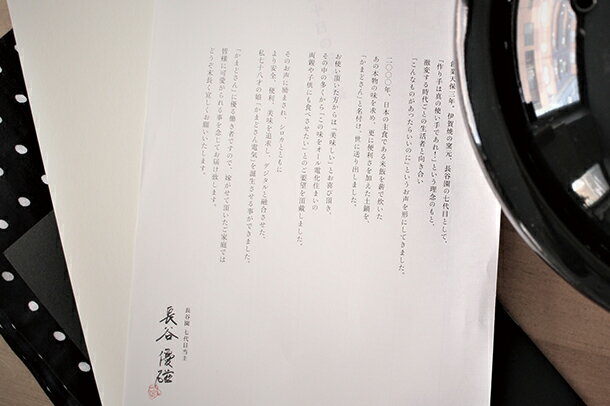 創業天保三年・伊賀焼の窯元、長谷園の七代目として、
「作り手は真の使い手であれ！」という理念のもと、
激変する時代ごとの生活者と向き合い
「こんなものがあったらいいのに」というお声を形にしてきました。
二〇〇〇年、日本の主食である米飯を薪で炊いた
あの本物の味を求め、更に便利さを加えた土鍋を、
「かまどさん」と名付け、世に送り出しました。
お使い頂いた方からは「美味しい」とお喜び頂き、
その中の多くから「この味をオール電化住まいの
両親や子供にも食べさせたい」とのご要望を頂戴しました。
そのお声に励まされ、シロカとともに
より安全、便利、美味を追求し、デジタルと融合させた、
私七十八才の娘「かまどさん電気」を誕生させる事ができました。
「かまどさん」に優る働き者ですので、嫁がせて頂いたご家庭では
皆様に可愛がられる事を念じてお届け致します。
どうぞ末長く宜しくお願いいたします。
長谷園 七代目当主
長谷優磁